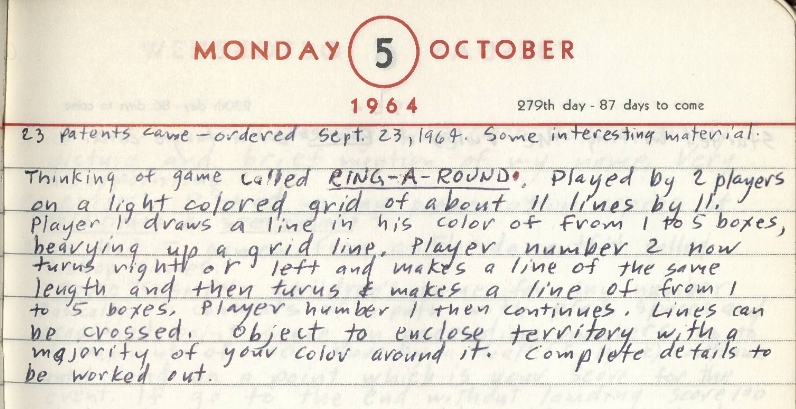 MONDAY 5 OCTOBER
1964
279th day - 87 days to come
23 patents came - ordered Sept. 23, 1964. Some interesting material.
Thinking of game called RING-A-ROUND. Played by 2 players
on a light colored grid of about 11 lines by 11.
Player 1 draws a line in his color of from 1 to 5 boxes,
heavying up a grid line. Player number 2 now
turns right or left and makes a line of the same
length and then turns & makes a line of from 1
to 5 boxes. Player number 1 then continues. Lines can
be crossed. Object to enclose territory with a
majority of your color around it. Complete details to
be worked out.